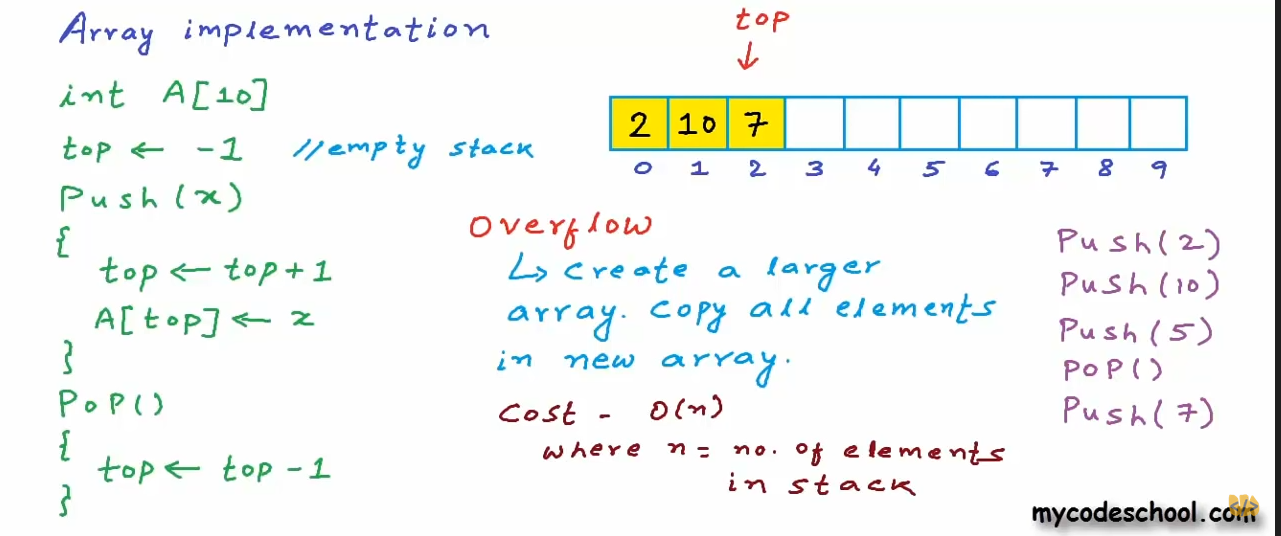 Array implementation
int A[10]
top ← -1 //empty stack
Push(x)
{
top ← top+1
A[top] ← x
}
Pop()
{
top ← top -1
}
top
↓
2 10 7
0 1 2 3 4 5 6 7 8 9
Overflow
↳ create a larger
array. copy all elements
in new array.
Cost - O(n)
where n = no. of elements
in stack
Push(2)
Push(10)
Push(5)
POP()
Push(7)
mycodeschool.com